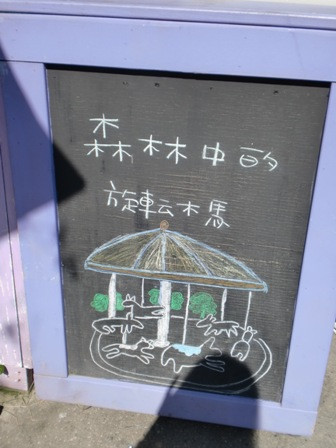 森林中的
旋転木馬